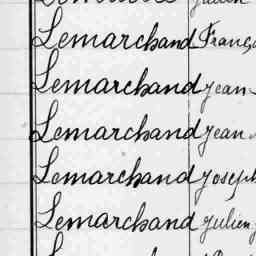 Lemarchand Franç
Lemarchand Jean
Lemarchand Jean
Lemarchand Joseph
Lemarchand Julien